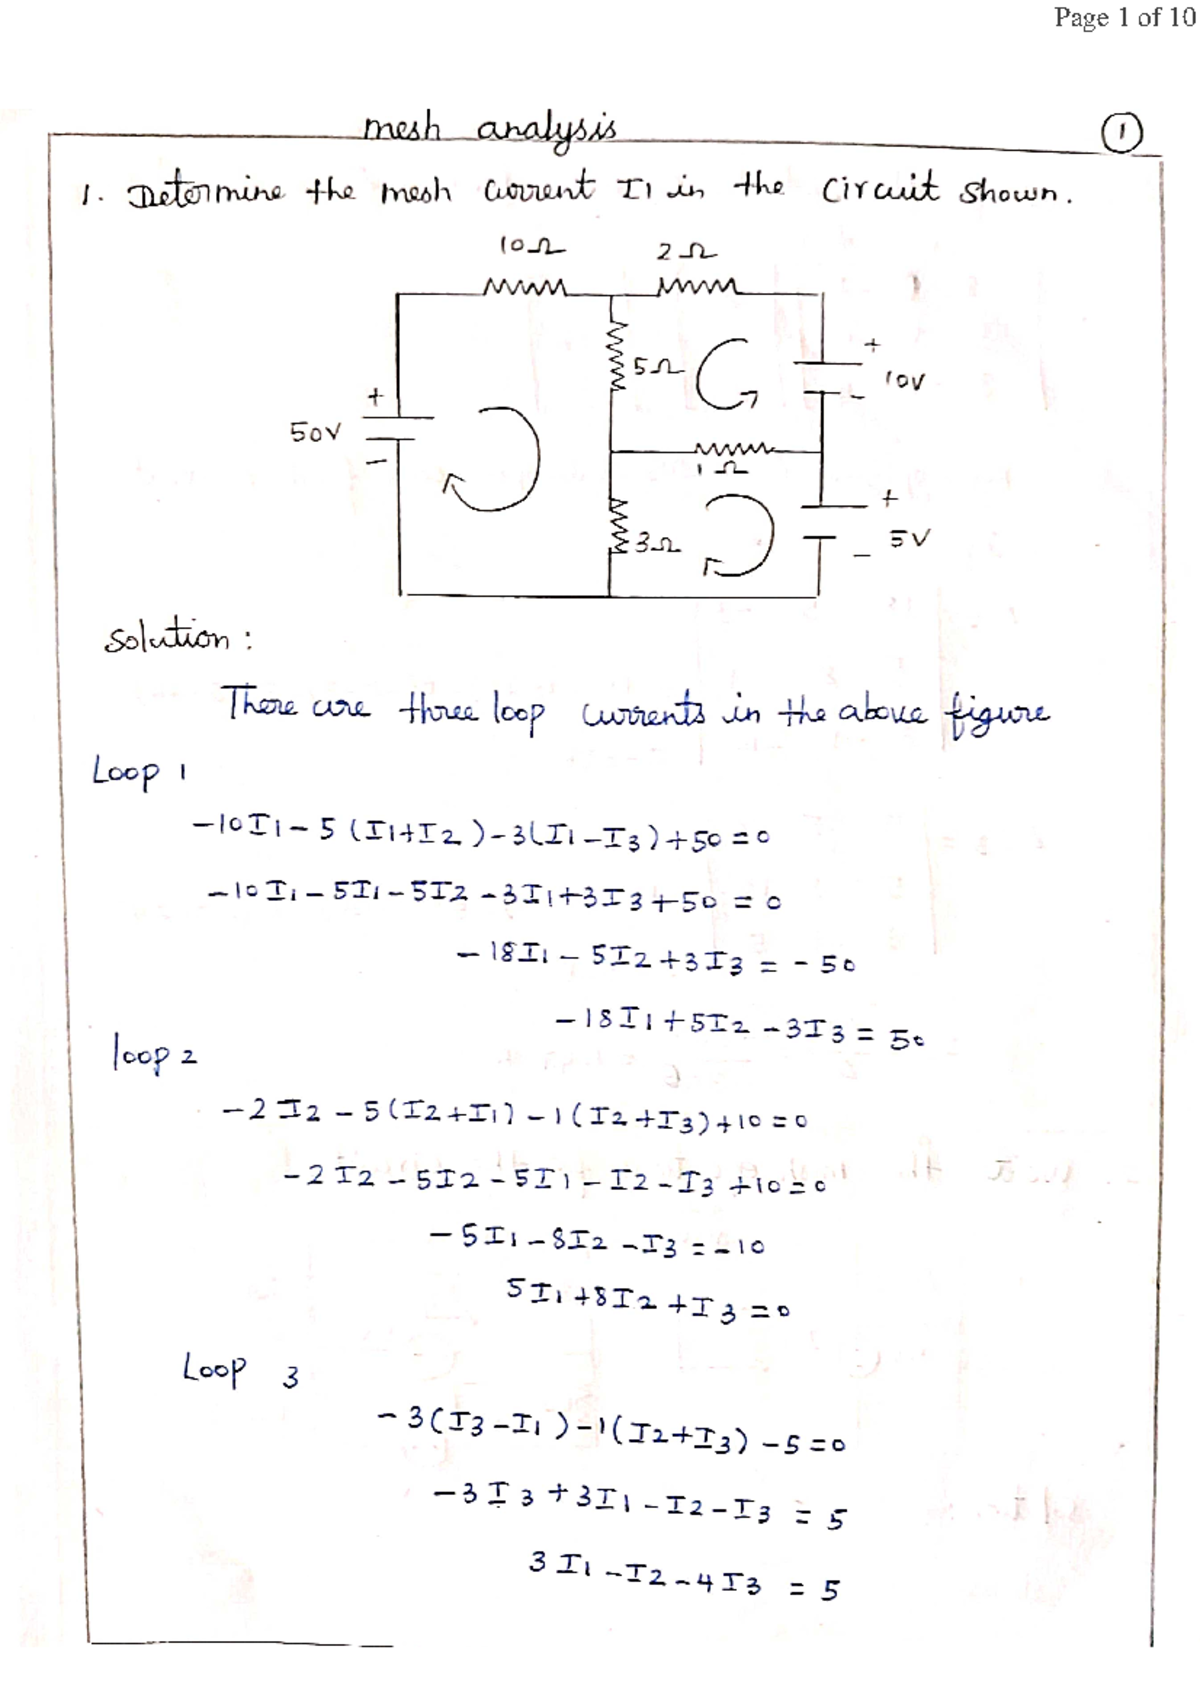 Page 1 of 10
mesh analysis
1
1. Determine the mesh current I1 in the circuit shown.
10Ω 2Ω
5Ω
+
10V
-
+
50V
-
1Ω
+
3Ω
5V
-
Solution :
There are three loop currents in the above figure
Loop 1
-10I1 - 5 (I1+I2) - 3(I1 - I3) + 50 = 0
-10I1 - 5I1 - 5I2 - 3I1 + 3I3 + 50 = 0
- 18I1 - 5I2 + 3I3 = - 50
- 18I1 + 5I2 - 3I3 = 50
loop 2
-2I2 - 5(I2+I1) - 1(I2+I3) + 10 = 0
-2I2 - 5I2 - 5I1 - I2 - I3 + 10 = 0
- 5I1 - 8I2 - I3 = - 10
5I1 + 8I2 + I3 = 0
Loop 3
- 3(I3 - I1) - 1(I2+I3) - 5 = 0
-3I3 + 3I1 - I2 - I3 = 5
3I1 - I2 - 4I3 = 5